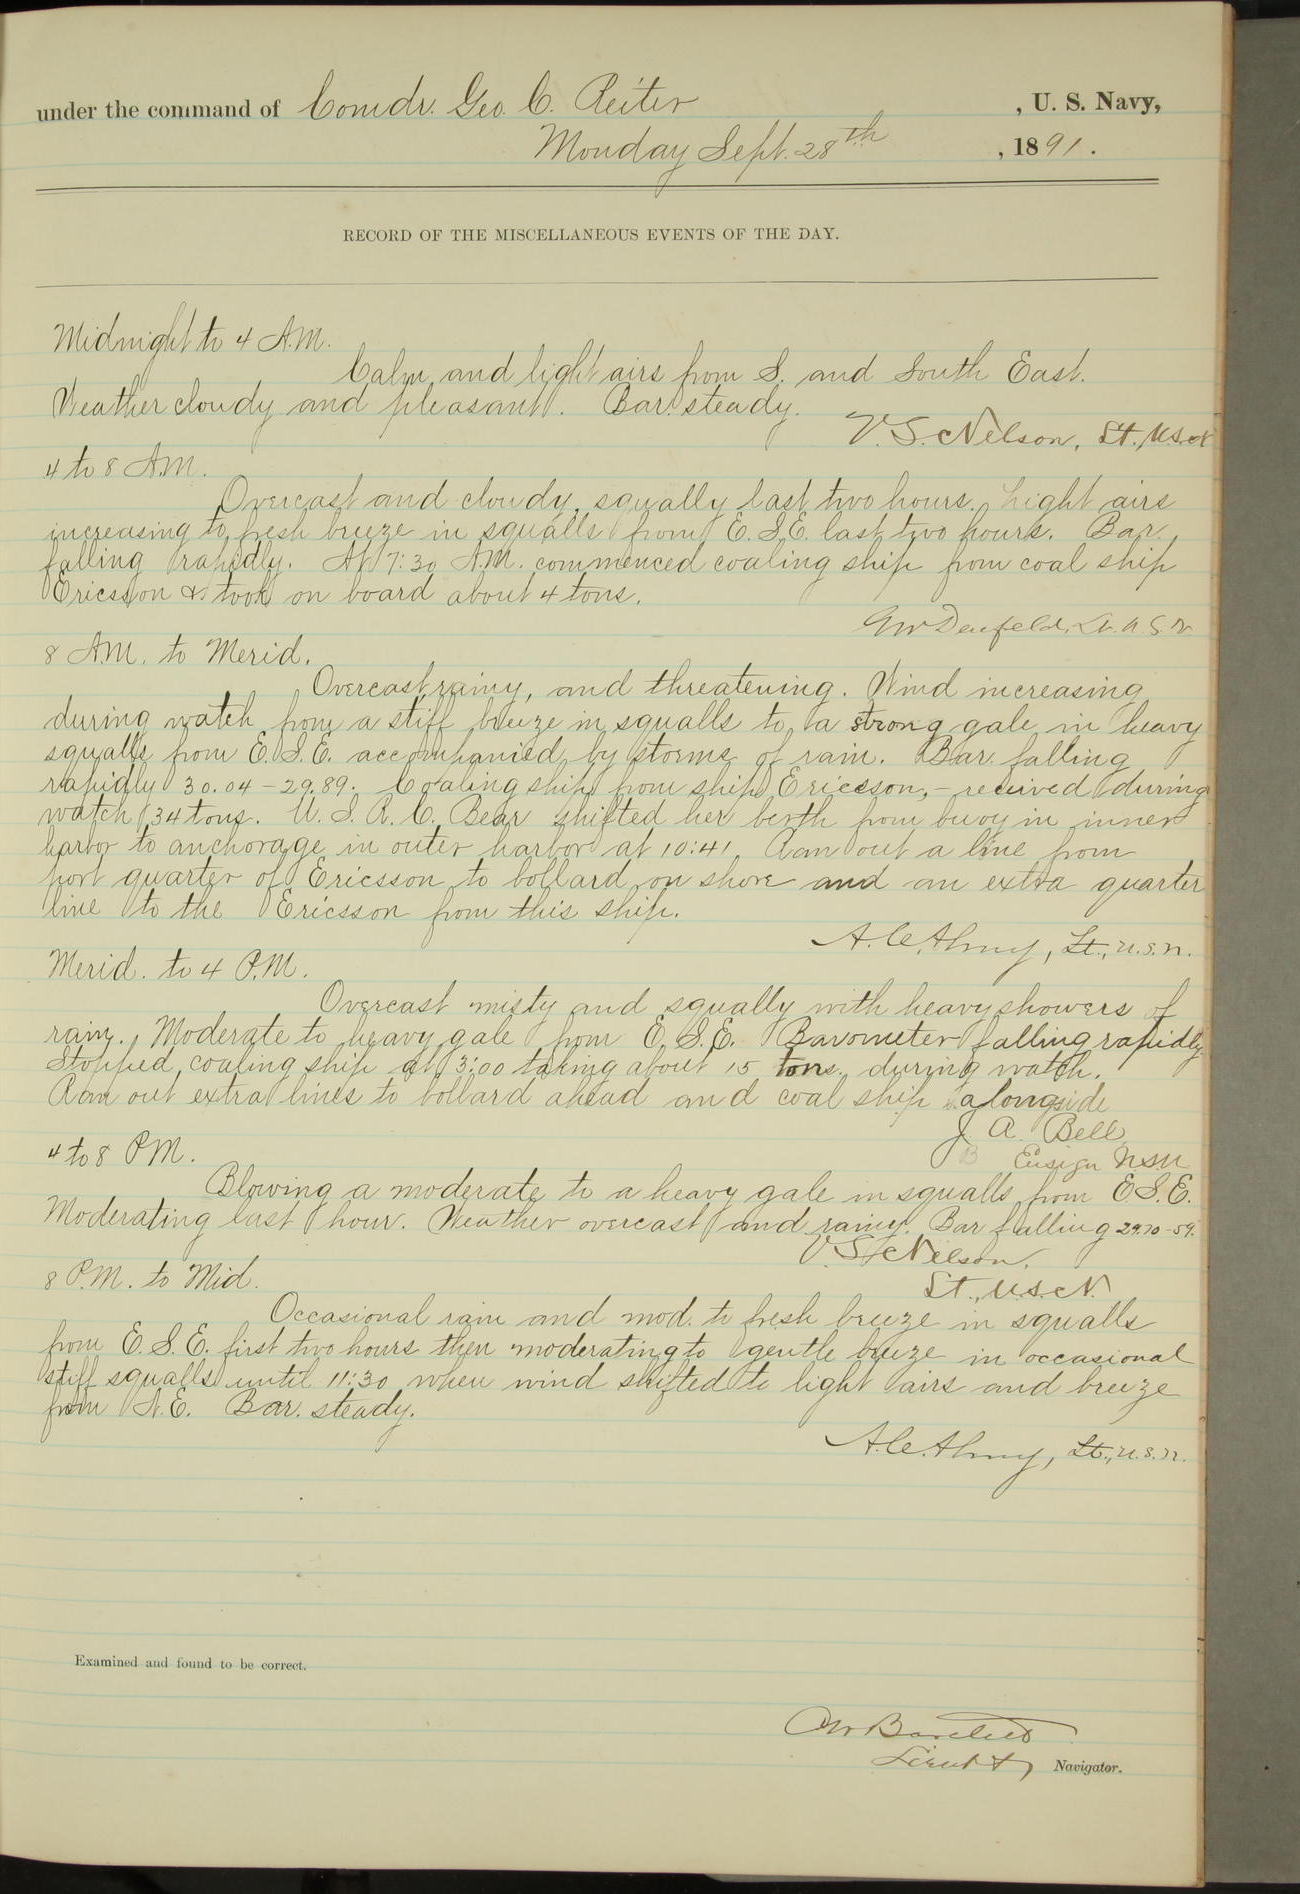 under the command of Comdr. Geo. C. Reiter , U. S. Navy,
Monday Sept. 28th , 1891.
RECORD OF THE MISCELLANEOUS EVENTS OF THE DAY.
Midnight to 4 A.M.
Calm and light airs from S. and South East.
Weather cloudy and pleasant. Bar. steady.
V. S. Nelson, Lt., U.S.N
4 to 8 A.M.
Overcast and cloudy, squally last two hours. Light airs
increasing to fresh breeze in squalls from E.S.E. last two hours. Bar.
falling rapidly. At 7:30 A.M. commenced coaling ship from coal ship
Ericsson & took on board about 4 tons.
GW Denfeld, Lt. U S N
8 A.M. to Merid.
Overcast, rainy, and threatening. Wind increasing
during watch from a stiff breeze in squalls to a strong gale in heavy
squalls from E.S.E. accompanied by storms of rain. Bar. falling
rapidly 30.04 - 29.89. Coaling ship from ship Ericsson, - received during
watch 34 tons. U. S. R. C. Bear shifted her berth from buoy in inner
harbor to anchorage in outer harbor at 10:41. Ran out a line from
port quarter of Ericsson to bollard on shore and an extra quarter
line to the Ericsson from this ship.
A. C. Almy, Lt., U.S.N.
Merid. to 4 P.M.
Overcast misty and squally with heavy showers of
rain. Moderate to heavy gale from E.S.E. Barometer falling rapidly
Stopped coaling ship at 3:00 taking about 15 tons during watch.
Ran out extra lines to bollard ahead and coal ship alongside
J. A. Bell
Ensign USN
4 to 8 P.M.
Blowing a moderate to a heavy gale in squalls from E.S.E.
Moderating last hour. Weather overcast and rainy. Bar falling 29.70-59.
V. S. Nelson,
Lt., U.S.N.
8 P.M. to Mid.
Occasional rain and mod. to fresh breeze in squalls
from E.S.E. first two hours then moderating to gentle breeze in occasional
stiff squalls until 11:30 when wind shifted to light airs and breeze
from N.E. Bar. steady.
A. C. Almy, Lt., U.S.N.
Examined and found to be correct.
Lieut Navigator.